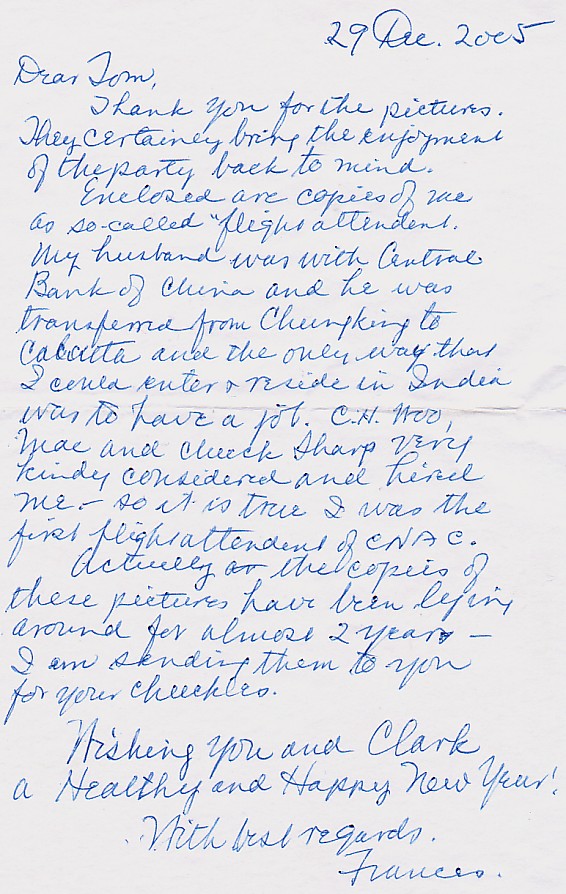 29 Dec. 2005
Dear Tom,
Thank you for the pictures.
They certainey bring the enjoyment
of the party back to mind.
Enclosed are copies of me
as so-called "flight attendent.
My husband was with Central
Bank of China and he was
transferred from Chungking to
Calcutta and the only way that
I could enter & reside in India
was to have a job. C.H. Woo,
Mac and Chuck Sharp very
kindy considered and hired
me. - so it is true I was the
first flight attendent of CNAC.
Actually the copies of
these pictures have been lying
around for almost 2 years -
I am sending them to you
for your chuckles.
Wishing you and Clark
a Healthy and Happy New Year!
With best regards.
Frances.